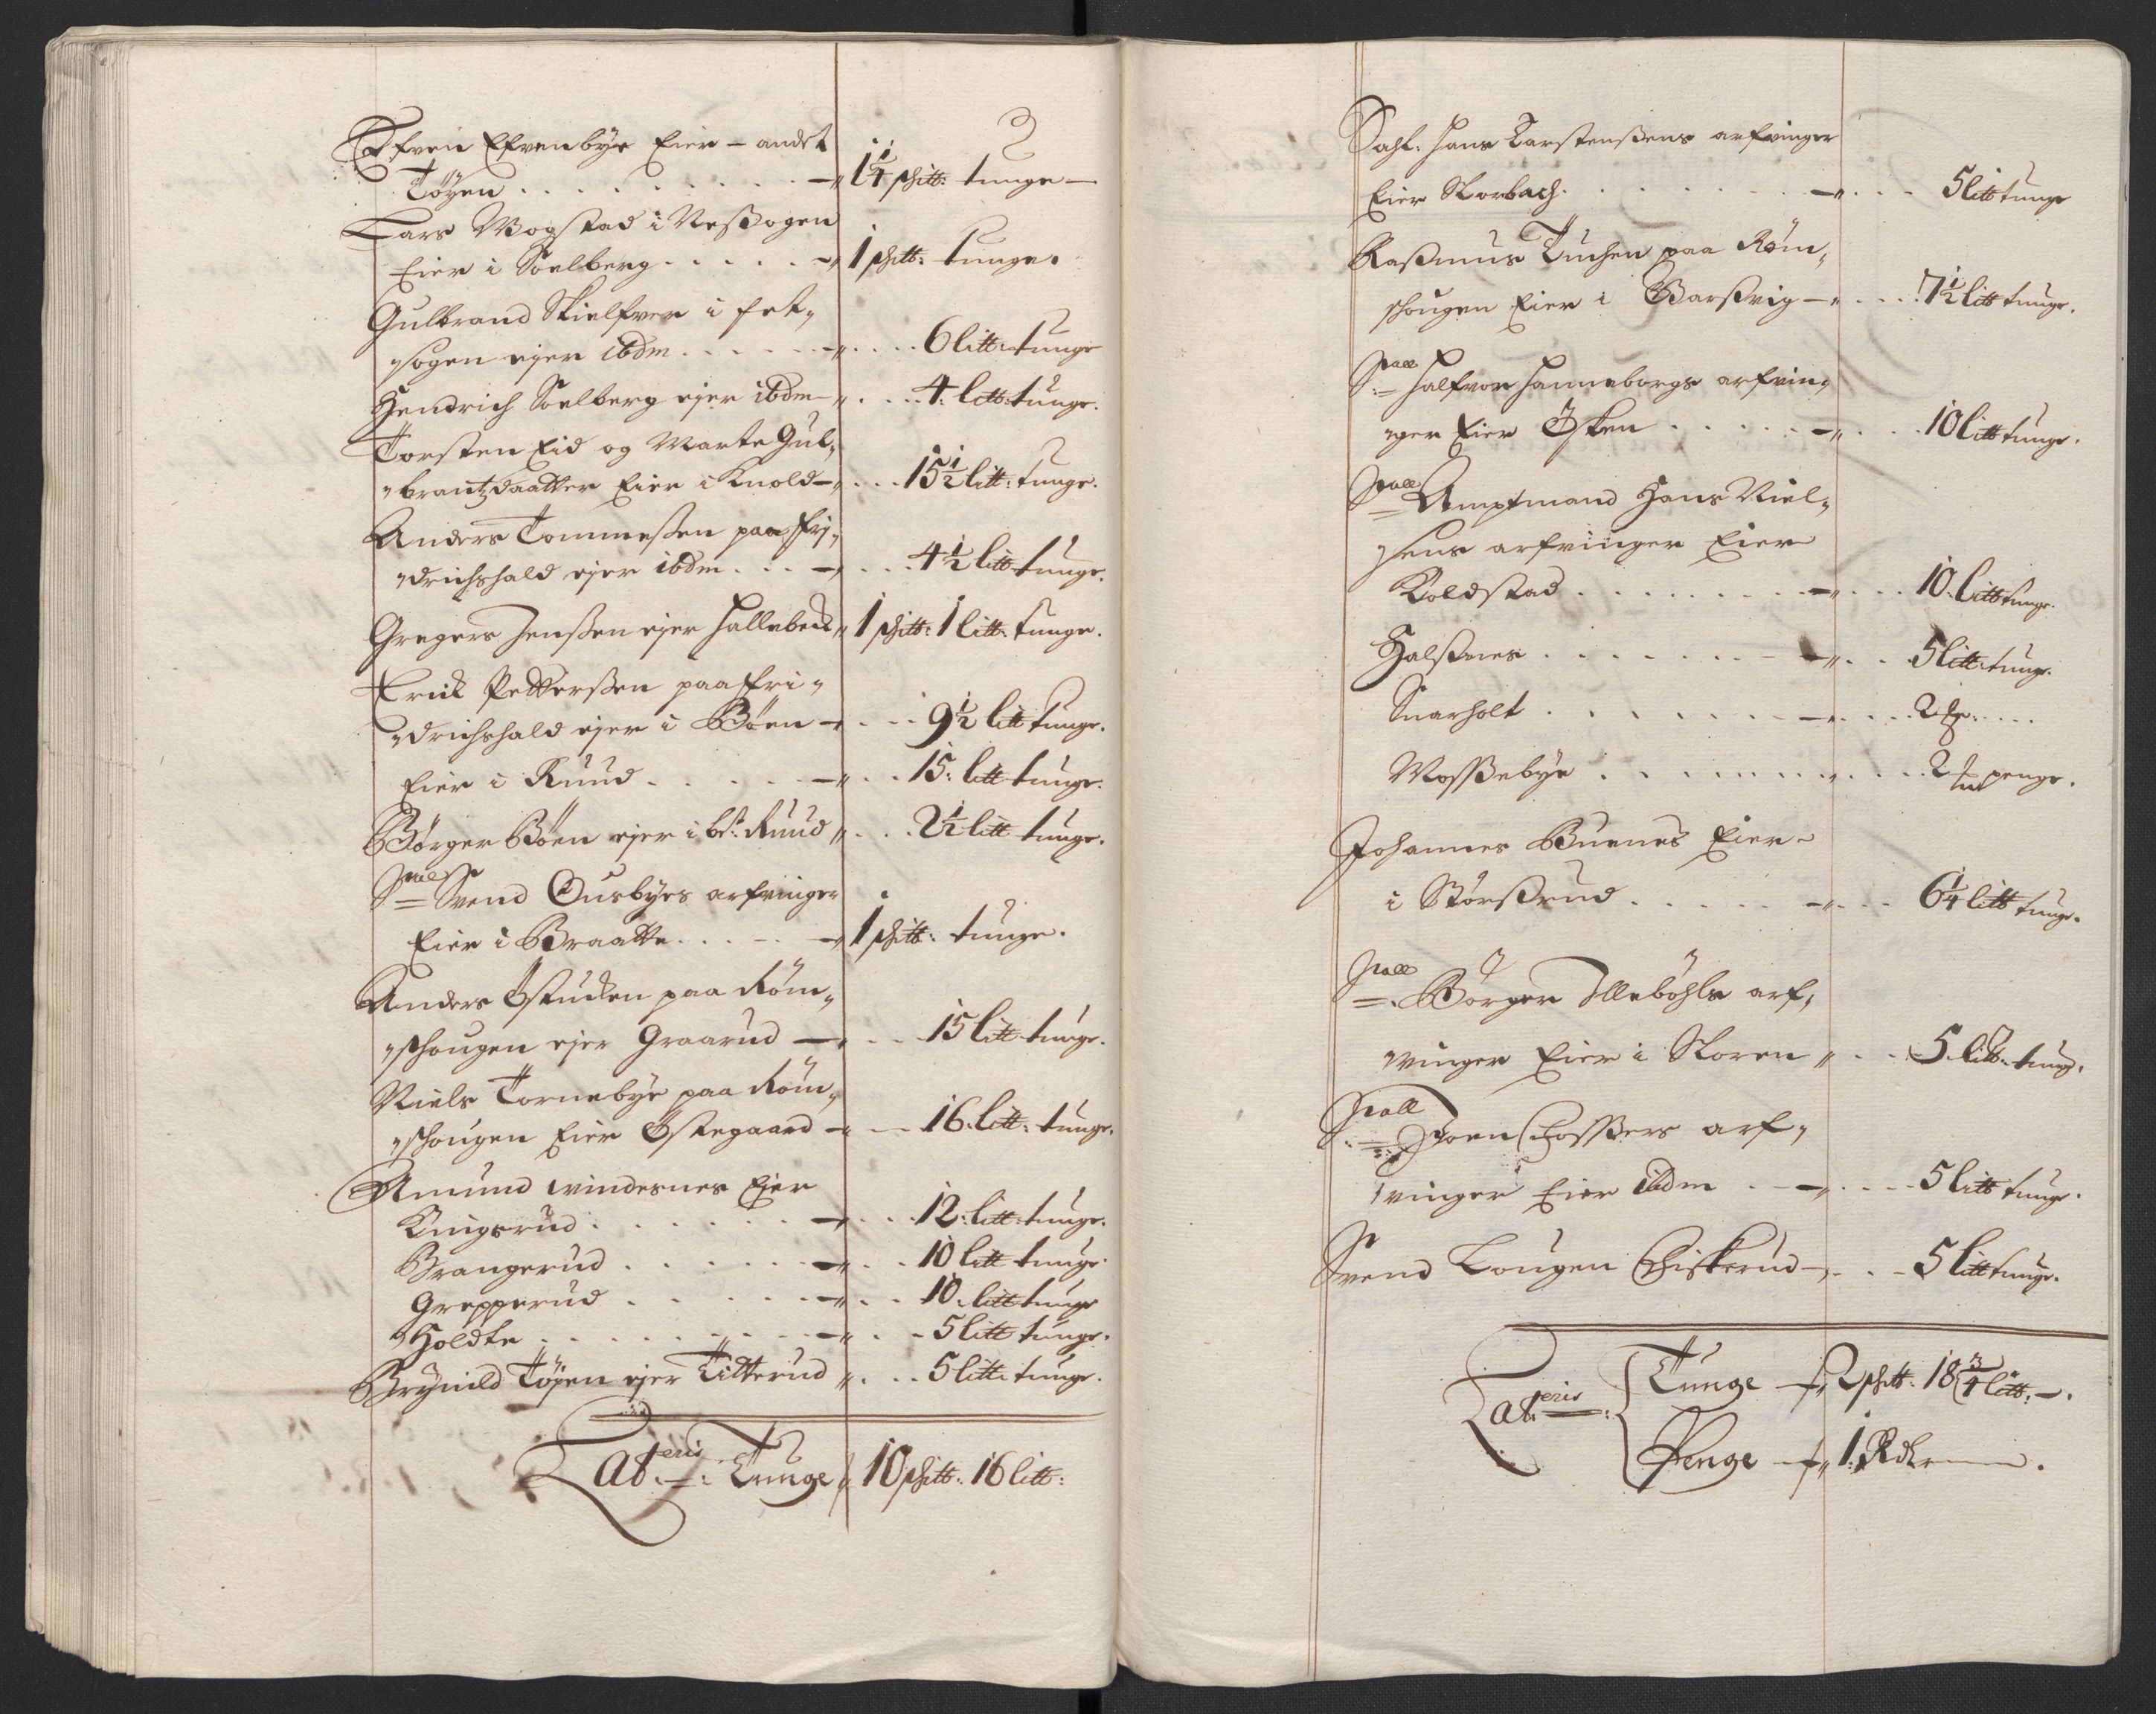 Efven Efvenbye Eier - andet
Töyen . . . . . . . . . — " 1 1/4 schtt: tunge —
Lars Mogstad i Neßogen
Eier i Soelberg . . . . . — " 1 schtt: tunge.
Gulbrand Skielfver i fet„
„sogen ejer ibdm . . . . . . — " . . . . 6 litt: tunge
Hendrich Soelberg ejer ibdm — " . . . . 4: litt: tunge.
Torsten Eid og Marte Gul„
„brantzdaatter Eier i Knold — " . . . 15 1/2 litt: tunge.
Anders Tommeßen paa fri„
„drichshald ejer ibdm . . . — " . . . 4 1/2 litt tunge.
Gregers Jenßen ejer Hallebeck " 1 schtt: 1 litt. tunge.
Erick Petterßen paa fri„
„drichshald ejer i Böen — " . . . 9 1/2 litt tunge.
Eier i Ruud . . . . . — " . . 15: litt tunge.
Börger Böen ejer i bt: Ruud " . . . 2 1/2 litt tunge.
Sall Svend Ousbyes arfvinger
Eier i Braatte . . . . . — " 1 schtt: tunge.
Anders Östucken paa Röm„
„schougen ejer Graarud — " . . . 15 litt tunge.
Niels Tornebye paa Röm„
„schougen Eier Östegaard — " — 16. litt: tunge.
Amund windesnes Ejer
Kingsrud . . . . . . . — " . . . 12: litt: tunge.
Brangerud . . . . . . — " . . 10 litt tunge.
Grepperud . . . . . — " . . 10. litt tunge
Holdte . . . . . . . — " . . 5 litt tunge.
Brynild Töjen ejer Titterud " . . . 5 litt: tunge.
Lateris: Tunge f 10 schtt: 16 litt:
Sahl: Hans Carstenßens arfvinger
Eier Skorbach . . . . . . . . . — " . . . 5 litt tunge
Raßmus Tuchen paa Röm„
schougen Eier i Barßvig — " . . . . 7 1/2 litt tunge.
Sall Halfvor Hanneborgs arfvin„
„ger Eier Östen . . . . . . — " . . . 10 litt tunge.
Sall Amptmand Hans Niel„
„ßens arfvinger Eier
Koldstad . . . . . . . . . — " . . . 10. litt tunge.
Halßnes . . . . . . . . — " . . 5 litt: tunge.
Snarholt . . . . . . . . . — " . . . . 2
Moßebye . . . . . . . . . " . . . . 2 penge.
Johannes Buenes Eier
i Störßrud . . . . . . — " . . . 6 1/4 litt tunge.
Sall Börger Illeböhls arf„
„vinger Eier i Skoren " . . . 5. litt: tung.
Sall Joen Foßers arf„
„vinger Eier ibdm . . . — " . . . . 5 litt tunge.
Svend Lougen Fiskerud — " . . . 5 litt tunge.
Lateris: Tunge — f„ 2 schtt: 18 3/4 litt: —.
Penge — f„ 1. Rdlr — .